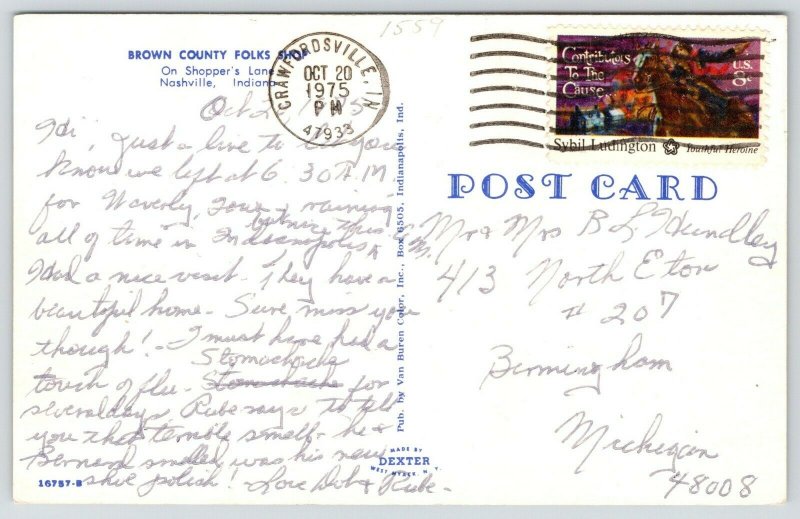 1559
BROWN COUNTY FOLKS SHOP
On Shopper's Lane
Nashville, Indiana
CRAWFORDSVILLE, IN
OCT 20
1975
PM
47933
Contributors
To The
Cause...
U.S.
8c
Sybil Ludington Youthful Heroine
POST CARD
Oct 2
Hi, Just a line to let you
know we left at 6:30 A.M.
for Waverly, Iowa & raining
all of time in Indianapolis but nice this
Had a nice visit. They have a
beautiful home. Sure miss you
though! - I must have had a
Stomachache
touch of flu - Stomachache for
several days Rube says to tell
you that terrible smell he &
Bernard smelled was his new
shoe polish! - Love Dot & Rube -
Mr & Mrs B L Hundley
413 North Eton
# 207
Bermingham
Michigan
48008
Pub. by Van Buren Color, Inc., Box 6505, Indianapolis, Ind.
MADE BY
DEXTER
WEST NYACK, N. Y.
16757-B